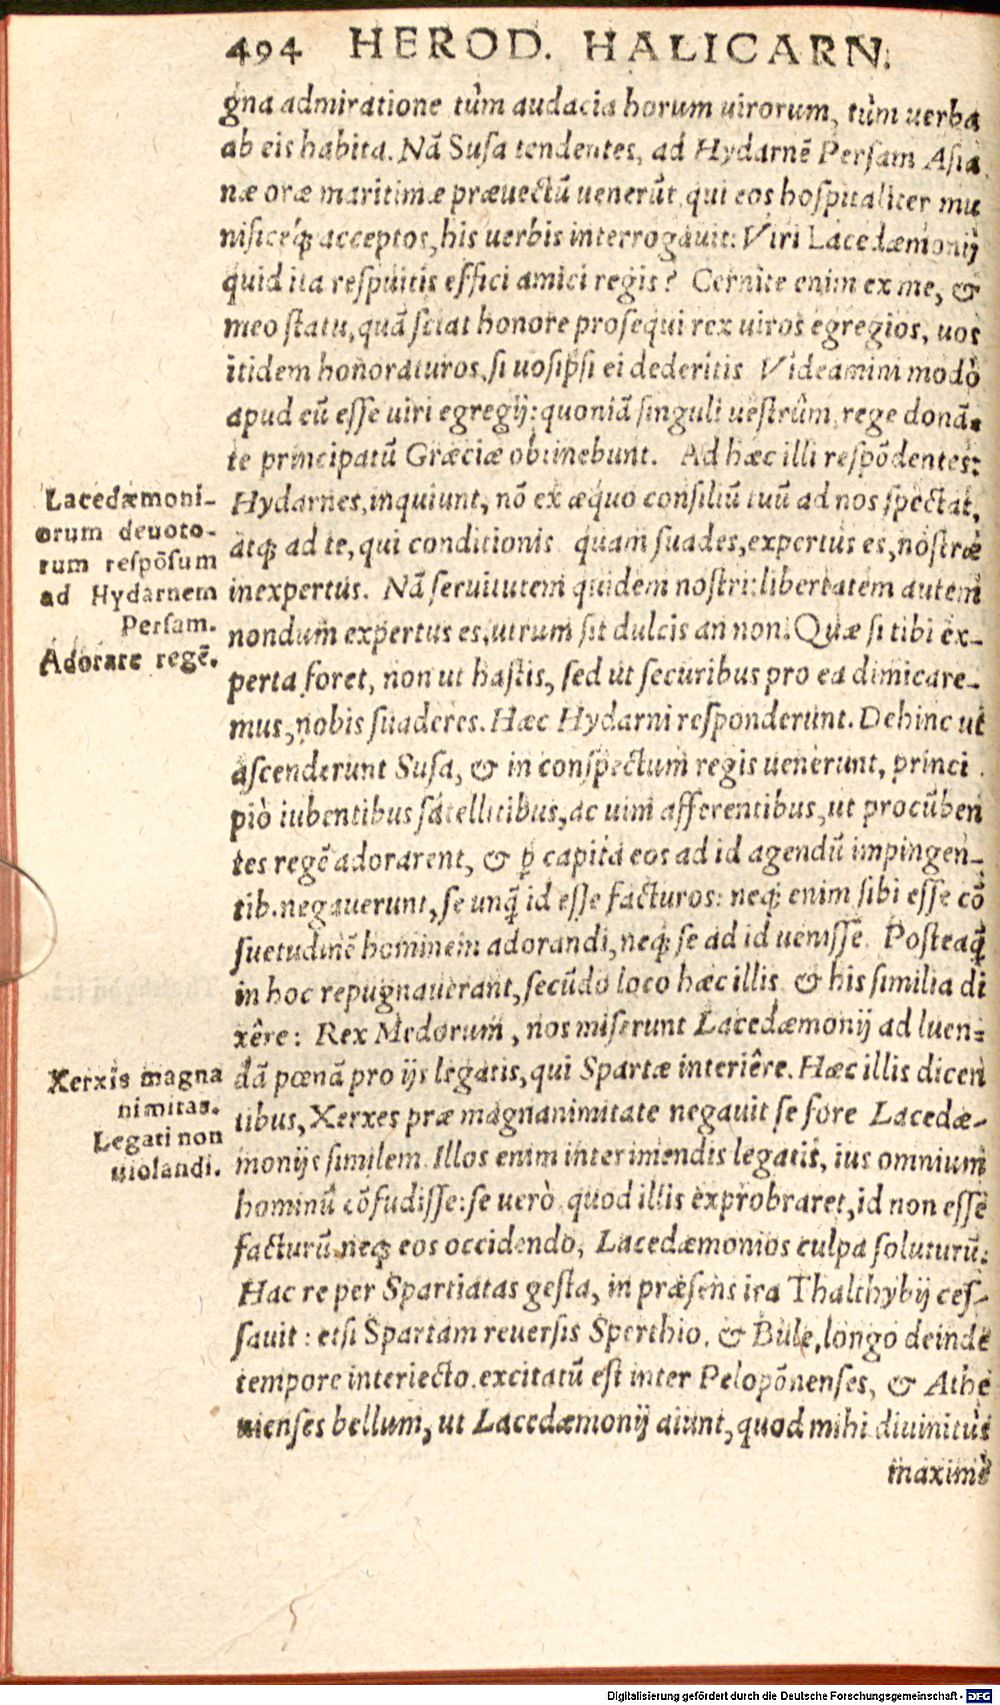 494 HEROD. HALICARN.
gna admiratione tùm audacia horum uirorum, tùm uerba
ab eis habita. Nā Susa tendentes, ad Hydarnē Persam Asia
næ oræ maritimæ præuectū uenerūt, qui eos hospitaliter mu
nificeq́; acceptos, his uerbis interrogauit: Viri Lacedæmonij
quid ita respuitis effici amici regis? Cernite enim ex me, &
meo statu, quā sciat honore prosequi rex uiros egregios, uos
itidem honoraturos, si uosipsi ei dederitis. Videamini modò
apud eū esse uiri egregij: quoniā singuli uestrûm, rege donā-
te principatū Græciæ obtinebunt. Ad hæc illi respōdentes:
Hydarnes, inquiunt, nō ex æquo consiliū tuū ad nos spectat,
atq; ad te, qui conditionis quam suades, expertus es, nostræ
inexpertus. Nā seruitutem quidem nostri: libertatem autem
nondum expertus es, utrum sit dulcis an non. Quæ si tibi ex-
perta foret, non ut hastis, sed ut securibus pro ea dimicare-
mus, nobis suaderes. Hæc Hydarni responderunt. Dehinc ut
ascenderunt Susa, & in conspectum regis uenerunt, princi
piò iubentibus satellitibus, ac uim afferentibus, ut procūben
tes regē adorarent, & ꝑ capita eos ad id agendū impingen-
tib. negauerunt, se unq̄ id esse facturos: neq; enim sibi esse cō
suetudinē hominem adorandi, neq; se ad id uenisse. Posteaq̄
in hoc repugnauerant, secūdo loco hæc illis & his similia di
xêre: Rex Medorum, nos miserunt Lacedæmonij ad luen-
dā pœnā pro ijs legatis, qui Spartæ interiêre. Hæc illis dicen
tibus, Xerxes præ magnanimitate negauit se fore Lacedæ-
monijs similem. Illos enim interimendis legatis, ius omnium
hominū cōfudisse: se uerò quod illis exprobraret, id non esse
facturū, neq; eos occidendo, Lacedæmonios culpa soluturū.
Hac re per Spartiatas gesta, in præsens ira Thalthybij ces-
sauit: etsi Spartam reuersis Sperthio, & Bule, longo deinde
tempore interiecto, excitatū est inter Pelopōnenses, & Athe
nienses bellum, ut Lacedæmonij aiunt, quod mihi diuinitùs
maximè
Lacedæmoni-
orum deuoto-
rum respōsum
ad Hydarnem
Persam.
Adorare regē.
Xerxis magna
nimitas.
Legati non
uiolandi.
Digitalisierung gefördert durch die Deutsche Forschungsgemeinschaft - DFG